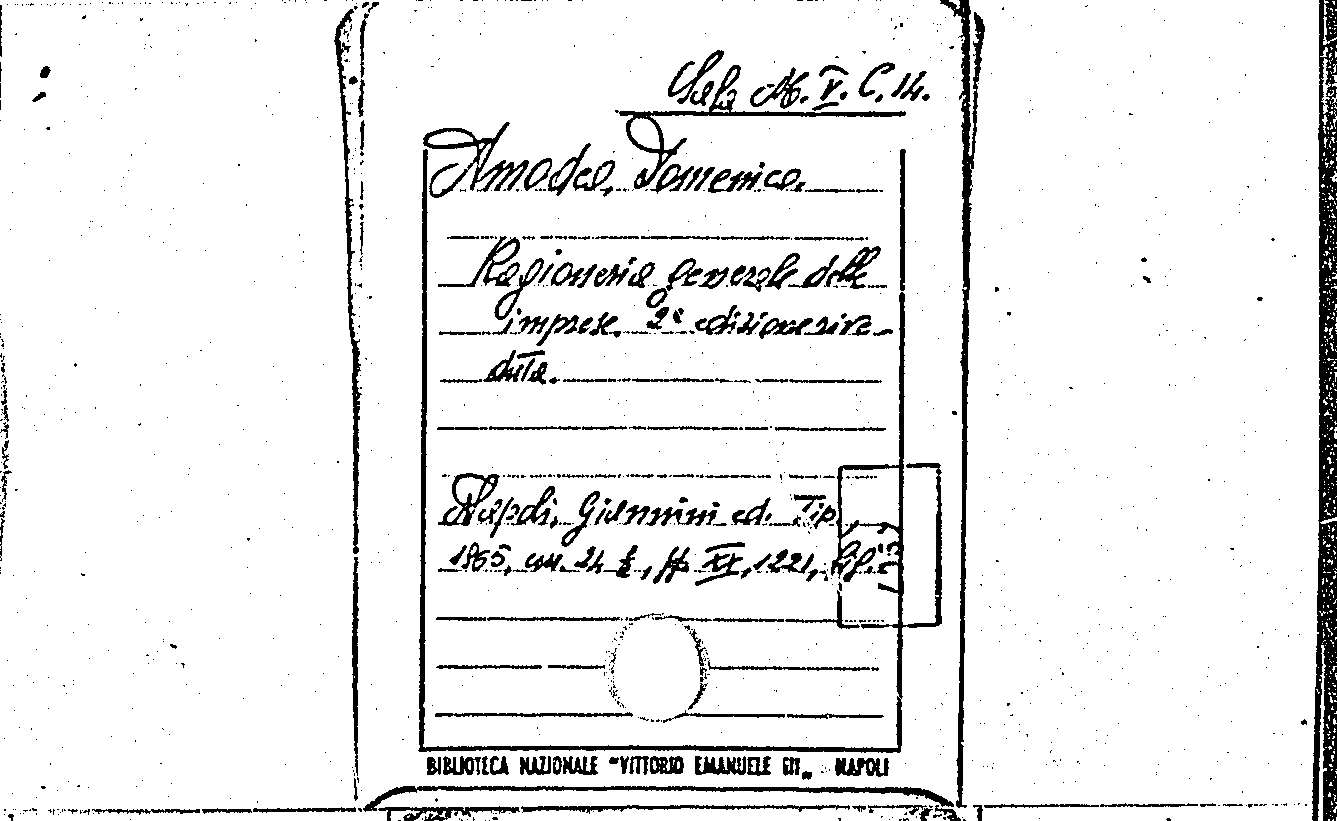 Sala M. V. C. 14.
Amodeo, Domenico.
Ragioneria generale delle
imprese. 2ª edizione rive-
duta.
Napoli, Giannini ed. Tip.,
1965, cm. 24 ½, pp. XX, 1221,
BIBLIOTECA NAZIONALE "VITTORIO EMANUELE III„ NAPOLI